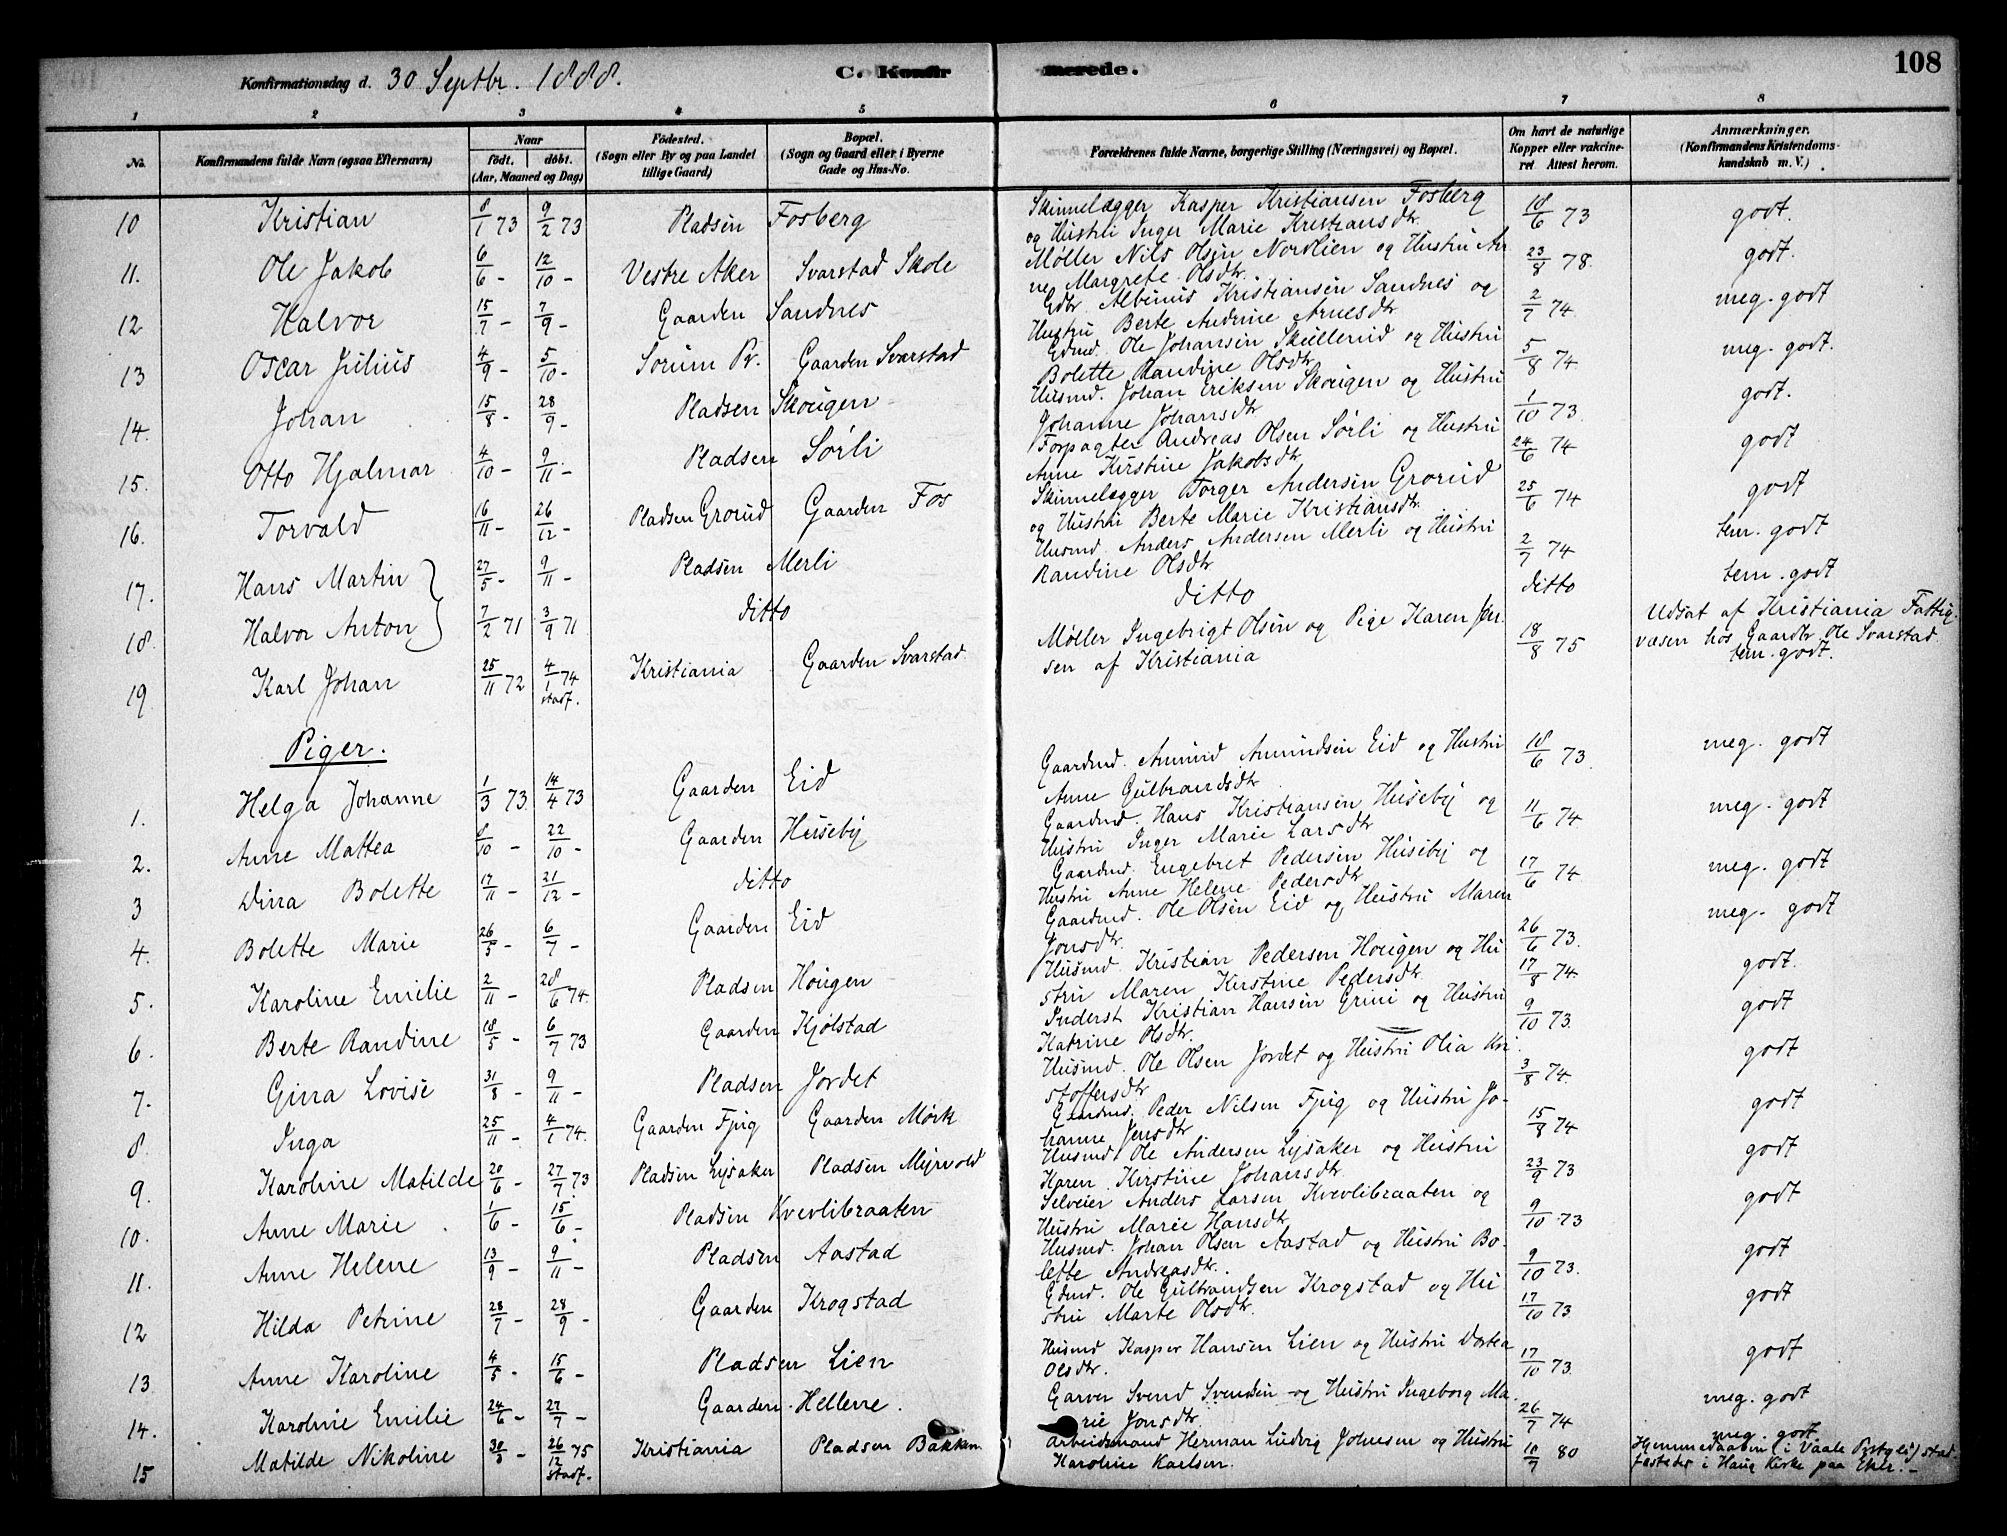 108
Konfirmationsdag d. 30 Septbr. 1888. C. Konfirmerede.
1 2 3 4 5 6 7 8
No. Konfirmandens fulde Navn (ogsaa Efternavn) Naar født. døbt. (Aar, Maaned og Dag) Fødested. (Sogn eller By og paa Landet tillige Gaard) Bopæl. (Sogn og Gaard eller i Byerne Gade og Hus-No. Forældrenes fulde Navne, borgerlige Stilling (Næringsvei) og Bopæl. Om havt de naturlige Kopper eller vakcineret Attest herom. Anmærkninger. (Konfirmandens Kristendomskundskab m. V.)
10 Kristian 8/1 73 9/2 73 Pladsen Fosberg Skinnelægger Kasper Kristiansen Fosberg og Hustru Inger Marie Kristiansdtr. 18/6 73 godt.
11. Ole Jakob 6/6 - 12/10 - Vestre Aker Svarstad Skole Møller Nils Olsen Nordlien og Hustru Anne Margrete Olsdtr. 23/8 78. godt.
12 Halvor 15/7 - 7/9 - Gaarden Sandnes Gdbr. Albinus Kristiansen Sandnes og Hustru Berte Andrine Arnesdtr 2/7 74 meg. godt
13 Oscar Julius 4/9 - 5/10 - Sørum Pr. Gaarden Svarstad Gdmd. Ole Johansen Skullerud og Hustru Bolette Randine Olsdtr 5/8 74 meg. godt.
14. Johan 15/8 - 28/9 - Pladsen Skougen Husmd. Johan Eriksen Skougen og Hustru Johanne Johansdtr 1/10 73 godt.
15. Otto Hjalmar 4/10 - 9/11 - Pladsen Sørli Forpagter Andreas Olsen Sørli og Hustru Anne Kirstine Jakobsdtr 24/6 74 godt
16. Torvald 16/11 - 26/12 - Pladsen Grorud Gaarden Fos Skinnelægger Torger Andersen Grorud og Hustru Berte Marie Kristiansdtr. 25/6 74 godt
17. Hans Martin 27/5 - 9/11 - Pladsen Merli Husmd. Anders Andersen Merli og Hustru Randine Olsdtr 2/7 74 tem. godt
18. Halvor Anton 7/2 71 3/9 71 ditto ditto ditto tem. godt
19 Karl Johan 25/11 72 4/1 74 stadf. Kristiania Gaarden Svarstad Møller Ingebrigt Olsen og Pige Karen Jensen af Kristiania 18/8 75 Udsat af Kristiania Fattigvæsen hos Gaardbr Ole Svarstad tem. godt.
Piger.
1. Helga Johanne 1/3 73. 14/4 73 Gaarden Eid Gaardmd. Amund Amundsen Eid og Hustru Anne Gulbrandsdtr. 18/6 73 meg. godt
2. Anne Mattea 8/10 - 22/10 - Gaarden Huseby Gaardmd. Hans Kristiansen Huseby og Hustru Inger Marie Larsdtr 11/6 74 meg. godt
3 Dina Bolette 17/11 - 21/12 - ditto Gaardmd. Engebret Pedersen Huseby og Hustru Anne Helene Pedersdtr 17/6 74 meg. godt
4. Bolette Marie 26/5 - 6/7 - Gaarden Eid Gaardmd. Ole Olsen Eid og Hustru Maren Jonsdtr. 26/6 73. meg. godt
5. Karoline Emilie 2/11 - 28/6 74. Pladsen Hougen Husmd. Kristian Pedersen Hougen og Hustru Maren Kirstine Pedersdtr 17/8 74 godt.
6. Berte Randine 18/5 - 6/7 73 Gaarden Kjølstad Inderst Kristian Hansen Grini og Hustru Katrine Olsdtr. 9/10 73. godt
7. Gina Lovise 31/8 - 9/11 - Pladsen Jordet Husmd. Ole Olsen Jordet og Hustru Olia Kristoffersdtr 3/8 74. godt
8. Inga 25/11 - 4/1 74. Gaarden Fjug Gaarden Mørk Gaardmd. Peder Nilsen Fjug og Hustru Johanne Jensdtr 15/8 74 godt
9. Karoline Matilde 20/6 - 27/7 73 Pladsen Lysaker Pladsen Myrvold Husmd Ole Andersen Lysaker og Hustru Karen Kirstine Johansdtr 23/9 73 godt
10. Anne Marie 1/6 - 15/6 - Pladsen Kvevlibraaten Selveier Anders Larsen Kvevlibraaten og Hustru Marie Hansdtr 9/10 73 godt
11. Anne Helene 13/9 - 9/11 - Pladsen Aastad Husmd. Johan Olsen Aastad og Hustru Bolette Andreasdtr. 9/10 73. godt
12 Hilda Petrine 28/7 - 28/9 - Gaarden Krogstad Gdmd. Ole Gulbrandsen Krogstad og Hustru Marte Olsdtr. 17/10 73 godt
13. Anne Karoline 4/5 - 15/6 - Pladsen Lien Husmd Kasper Hansen Lien og Hustru Dortea Olsdtr. 17/10 73. godt
14. Karoline Emilie 24/6 - 27/7 - Gaarden Hellene. Garver Svend Svendsen og Hustru Ingeborg Marie Jonsdtr. 26/7 74 meg. godt
15 Matilde Nikoline 30/3 - 26/12 75 stadf. Kristiania Pladsen Bakken Arbeidsmand Herman Ludvig Johnsen og Hustru Karoline Karlsen. 10/7 80 meg. godt Hjemmedaaben i Vaale Prstgj. stadfæstedes i Haug Kirke paa Eker. -